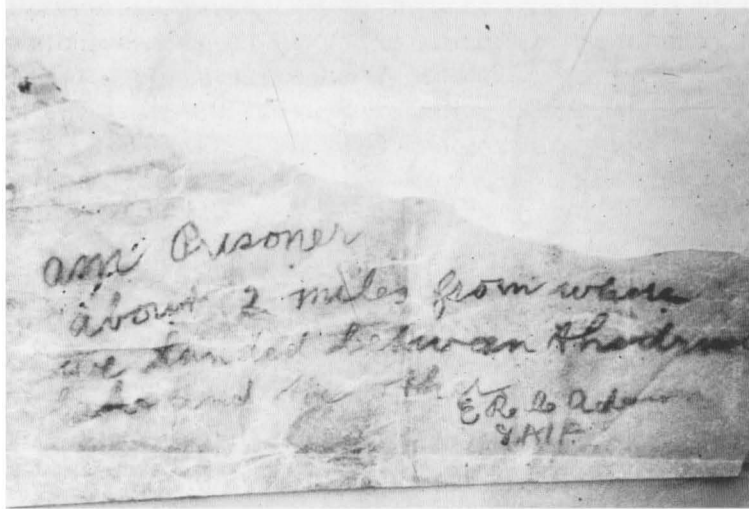 am Prisoner
about 2 miles from where
we landed between the
and the
E R C Adams
AIF